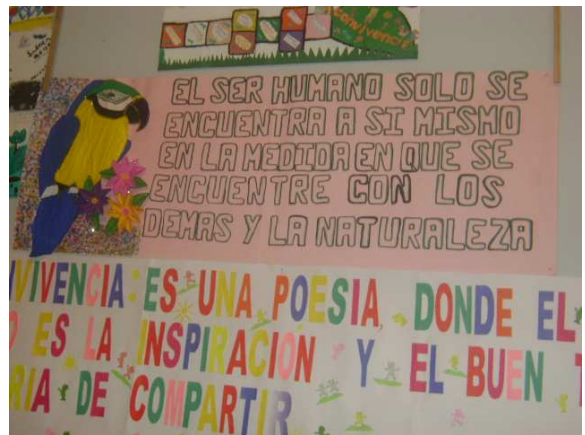 convivencia
EL SER HUMANO SOLO SE
ENCUENTRA A SI MISMO
EN LA MEDIDA EN QUE SE
ENCUENTRE CON LOS
DEMAS Y LA NATURALEZA
VIVENCIA: ES UNA POESIA, DONDE EL
ES LA INSPIRACIÓN Y EL BUEN
RIA DE COMPARTIR